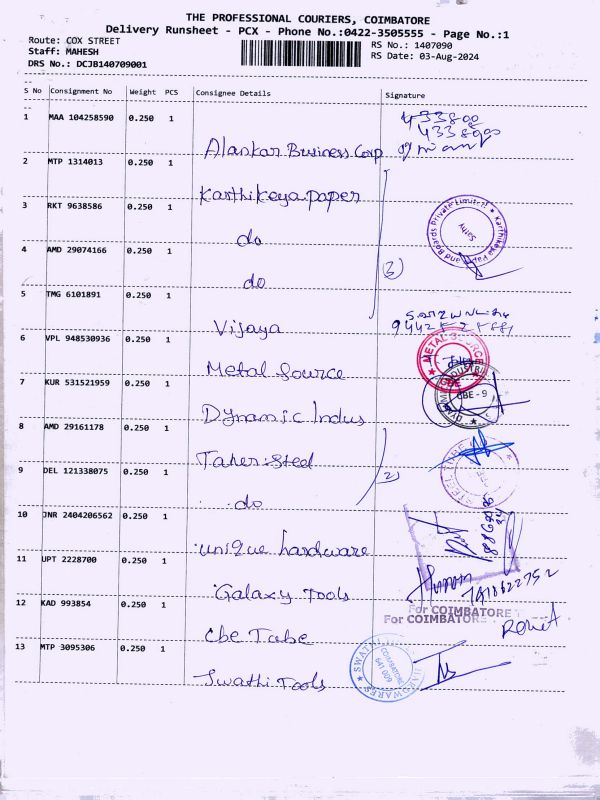 THE PROFESSIONAL COURIERS, COIMBATORE
Delivery Runsheet - PCX - Phone No.:0422-3505555 - Page No.:1
Route: COX STREET
RS No.: 1407090
Staff: MAHESH
RS Date: 03-Aug-2024
DRS No.: DCJB140709001
S No Consignment No Weight PCS Consignee Details Signature
1 MAA 104258590 0.250 1
Alankar Business Corp
2 MTP 1314013 0.250 1
Karthikeya paper
3 RKT 9638586 0.250 1
do
4 AMD 29074166 0.250 1
do
3)
Karthikeya Paper and Boards Private Limited
5 TMG 6101891 0.250 1
Vijaya
6 VPL 948530936 0.250 1
Metal Source
METAL SOURCE
CBE
7 KUR 531521959 0.250 1
Dynamic Indus
CBE - 9
8 AMD 29161178 0.250 1
Taher Steel
9 DEL 121338075 0.250 1
do
2)
10 JNR 2404206562 0.250 1
unique hardware
11 UPT 2228700 0.250 1
Galaxy Tools
12 KAD 993854 0.250 1
Cbe Tube
For COIMBATORE
For COIMBATORE
13 MTP 3095306 0.250 1
Swathi Tools
SWATHI HARDWARES
COIMBATORE
641 009